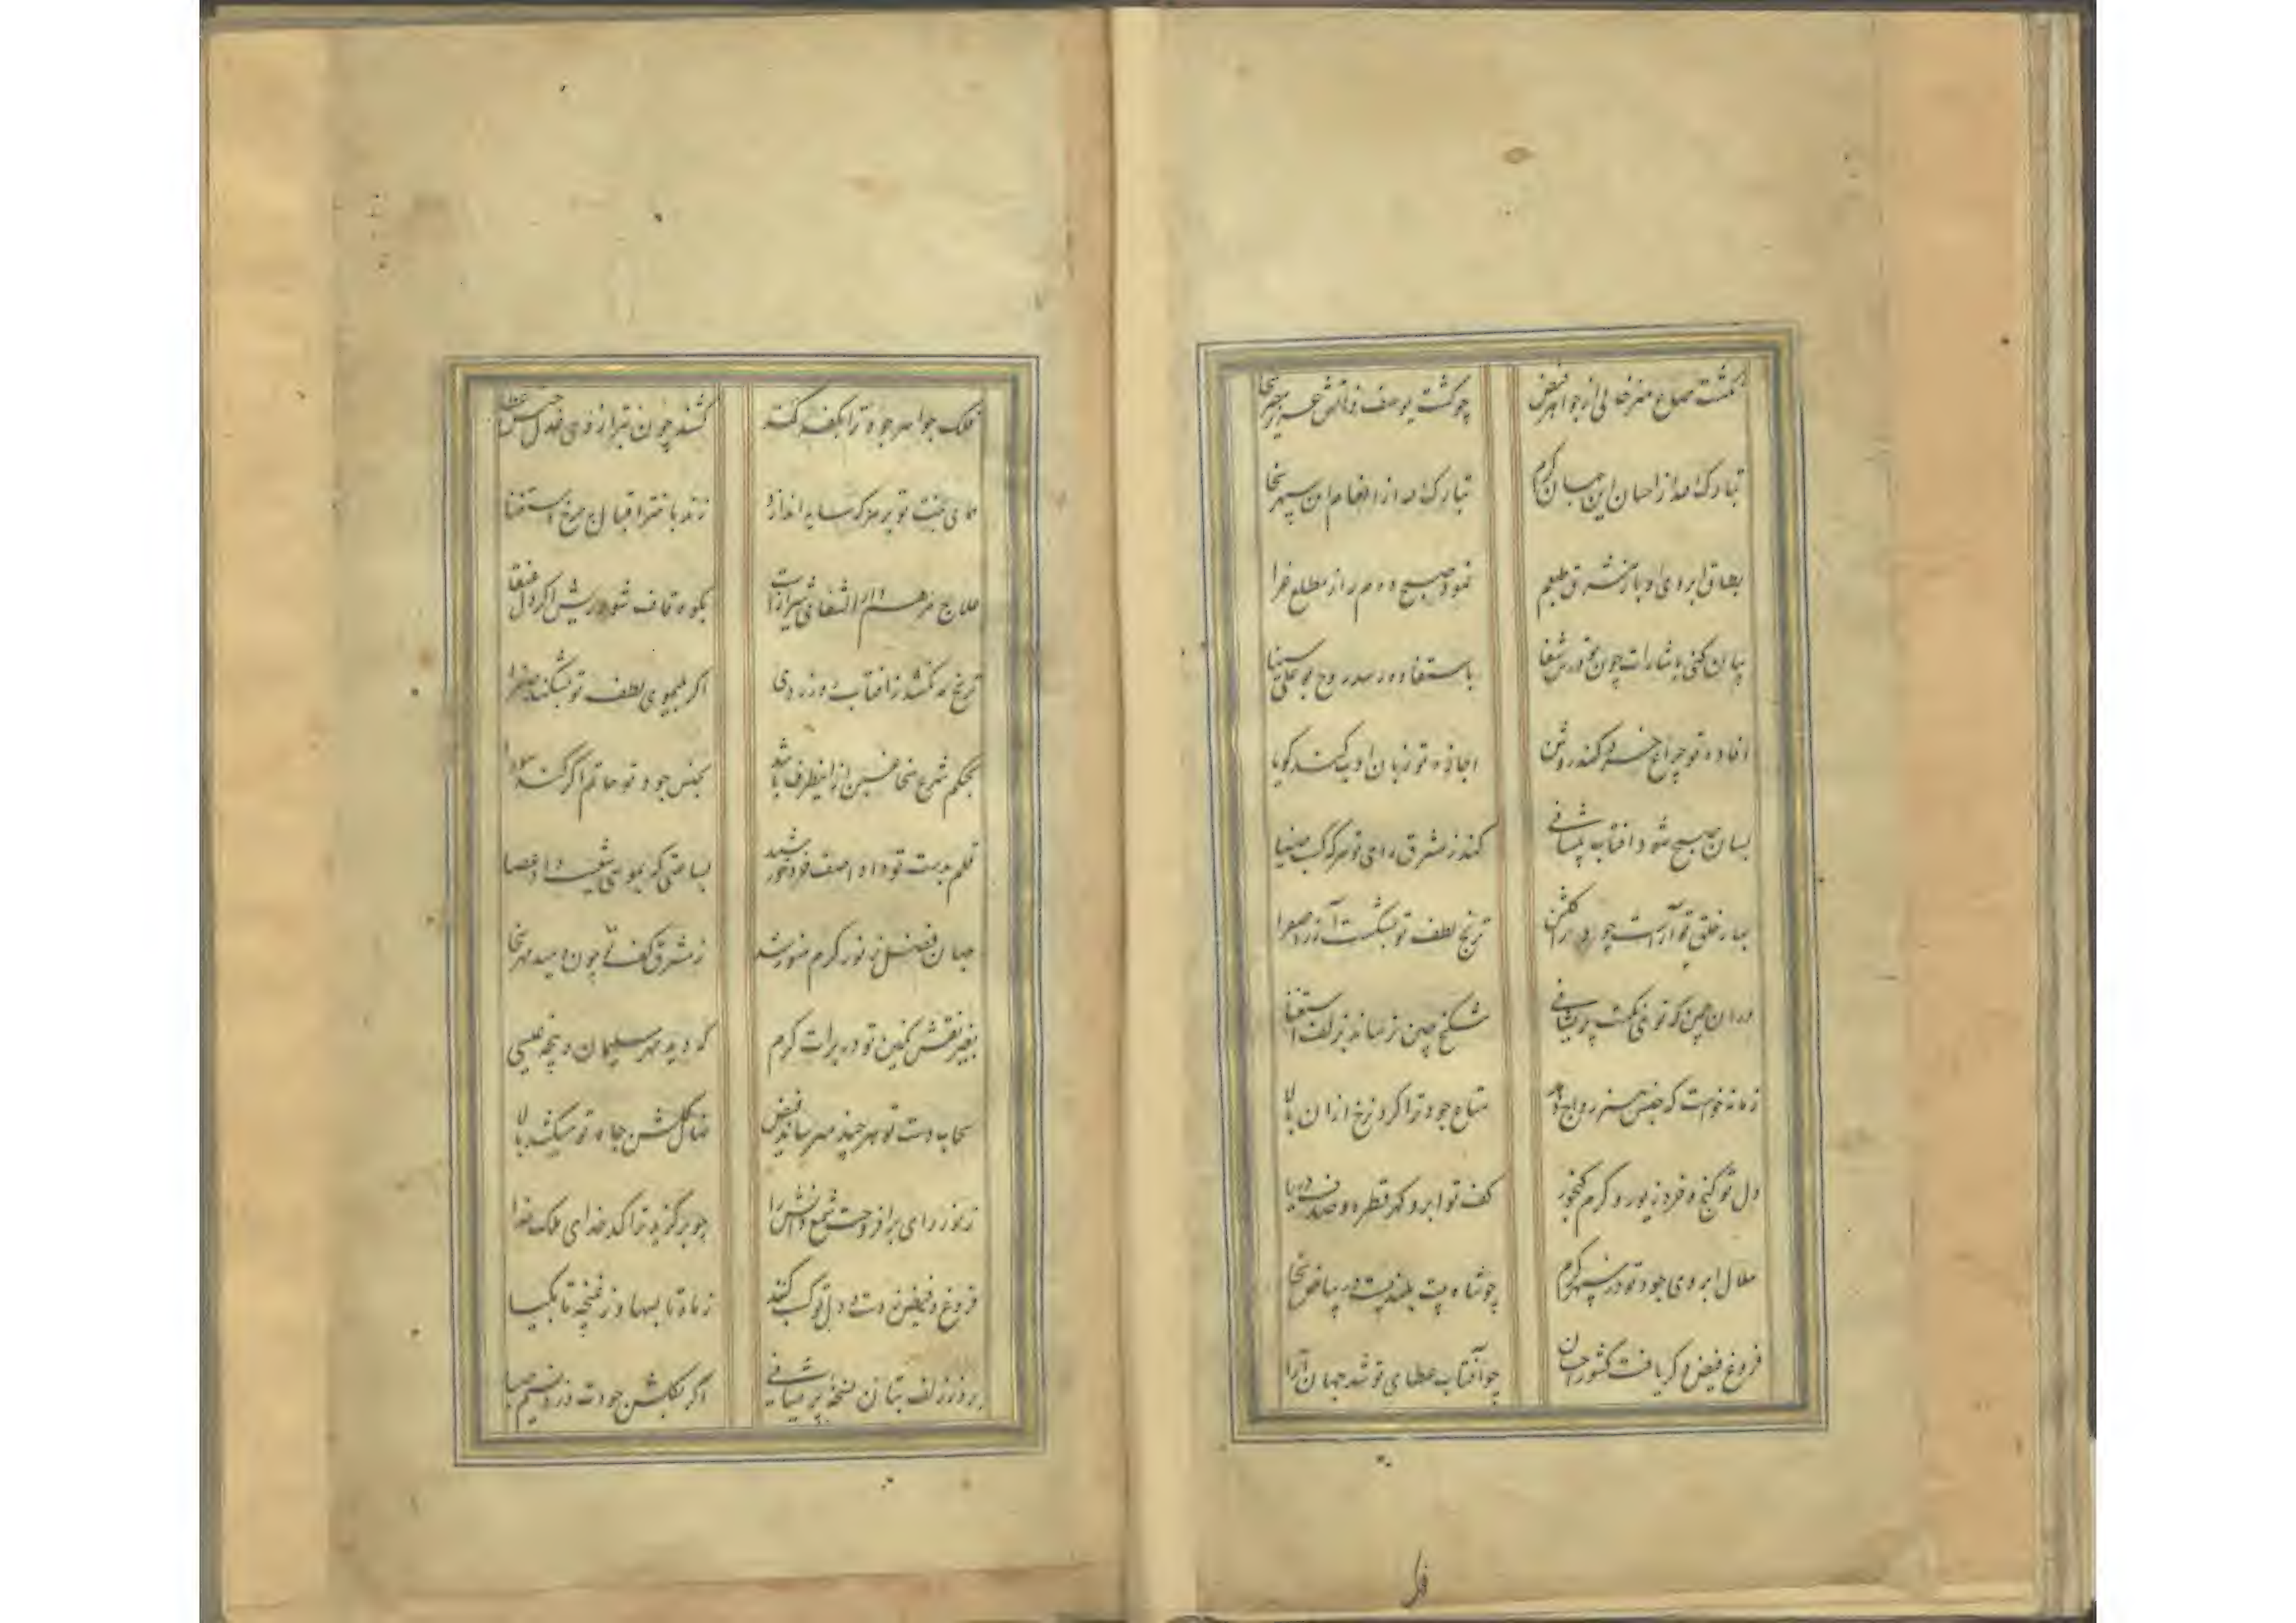 نگشت صباح هنر خالی از جواهر فیض
چو گشت یوسف ذاتش عزیز مصر سخا
تبارک الله از احسان این جهان کرم
تبارک الله از انعام این سپهر سخا
بطاق ابروی او باز مشرق طبعم
نمود صبح دوم را ز مطلع غرا
بیان کنی باشارات چون تو درس شفا
باستفاده رسد روح بوعلی سینا
افاده تو چراغ خرد کند روشن
اجازه تو زبان ادب کند گویا
بسان صبح شود آفتاب پیشانی
کند ز مشرق رای تو هر که کسب ضیا
بهار خلق تو آراست چو در گلشن
ترنج لطف تو بشکست آز را صفرا
دران چمن که تو غنی نکست پیشانی
شکنج چین ز نماند بزلف استغنا
زمانه خواست که جنس هنر رواج دهد
متاع جود ترا کرد نرخ ازان بالا
دل تو گنج و خرد زیور و کرم گنجور
کف تو ابر و گهر قطره و صدف دریا
هلال ابروی جود تو در سپهر کرم
چو شاه بیت بلندیست در بیاض سخا
فروغ فیض دگر یافت کشور احسان
چو آفتاب عطای تو شد جهان آرا
فلک جواهر جود ترا بکفه کشد
کشند چون بترازوی عدل جنس عطا
همای بخت تو بر هر که سایه اندازد
زند باختر اقبال چرخ استغنا
علاج مرهم دار الشفای شیر ازات
بکوه قاف شود ریش اگر دل عنقا
ترنج مه نکشد ز آفتاب دو زردی
اگر بلیموی لطف تو بشکند صفرا
بحکم شرع سخا غبن ازاینطرف باشد
بجنس جود تو حاتم اگر کند سودا
قلم بدست تو داد آصف خرد خورشید
بساعتی که بموسی شعیب داد عصا
جهان فضل ز نور کرم منور شد
ز مشرق کفت چون دمید مهر سخا
بغیر نقش نگین تو در برات کرم
که دید مهر سلیمان و پنجه عیسی
سحاب دست تو هر چند میرساند فیض
نهال گلشن جاه تو میکشد بالا
ز نور رای برافروخت شمع دانش را
چو برگزید ترا کدخدای ملک خدا
فروغ و فیض ز دست و دل تو کسب کنند
ز ماه تا بسها و ز غنچه تا بگیا
برد ز زلف بتان نسخه پریشانی
اگر بگلشن جودت وزد نسیم صبا